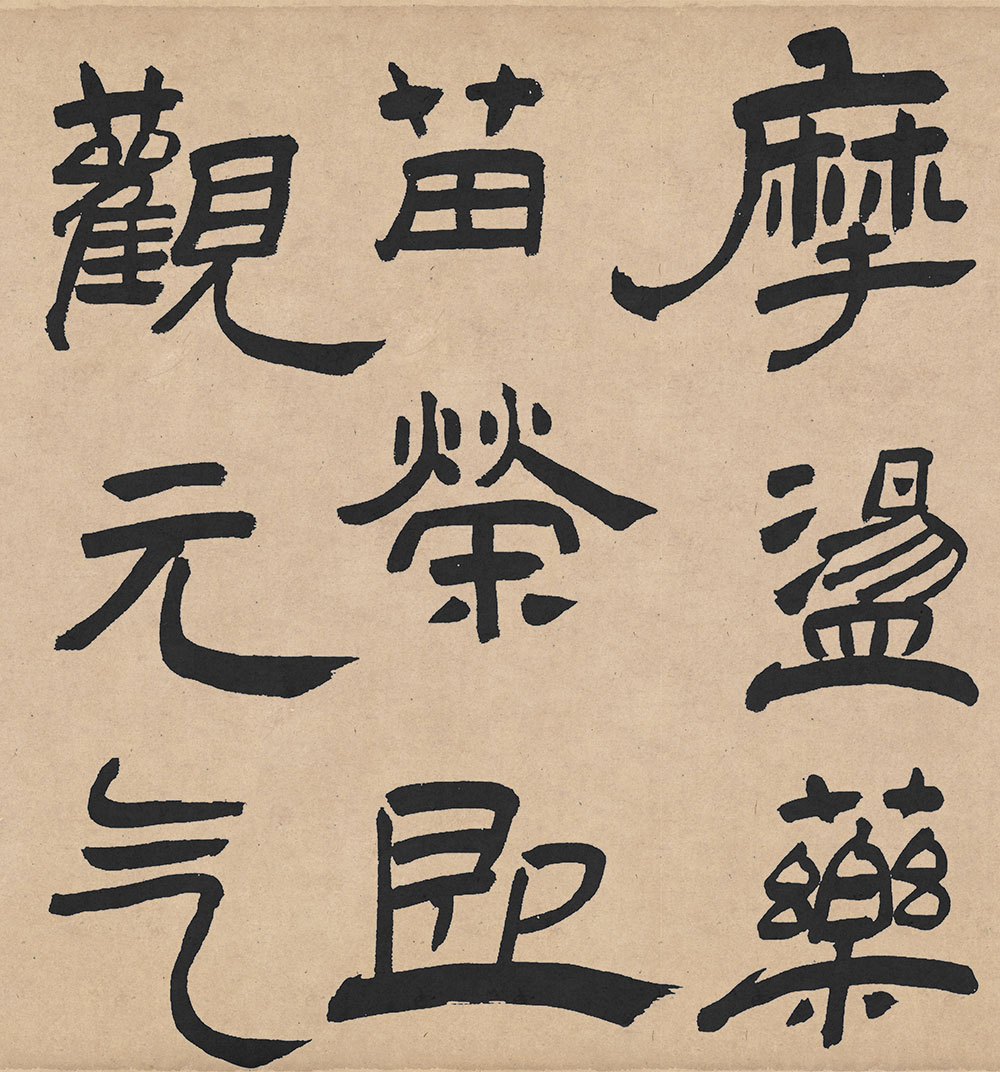 摩盪藥
苗榮即
觀元气